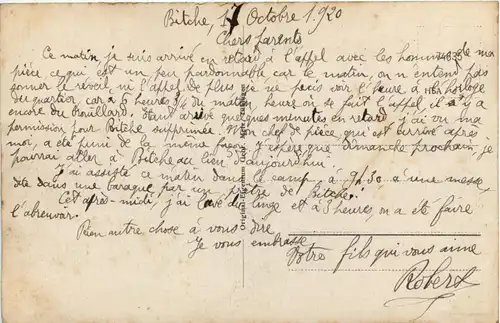 Bitche, 17 Octobre 1920
Chers parents
Ce matin, je suis arrivé en retard à l'appel avec les hommes de ma
pièce, ce qui est un peu pardonnable car le matin, on n'entend pas
sonner le réveil, ni l'appel. De plus, je ne puis voir l'heure à l'horloge
du quartier, car à 6 heures 3/4 du matin, heure où se fait l'appel, il y a
encore du brouillard. Étant arrivé quelques minutes en retard, j'ai vu ma
permission pour Bitche supprimée. Mon chef de pièce, qui est arrivé après
moi, a été puni de la même façon. J'espère que dimanche prochain, je
pourrai aller à Bitche au lieu d'aujourd'hui.
J'ai assisté ce matin dans le camp à 9h30 à une messe,
dite dans une baraque par un prêtre de Bitche.
Cet après-midi, j'ai lavé du linge et à 3 heures, on a été faire
l'abreuvoir.
Rien autre chose à vous dire
Je vous embrasse
Votre fils qui vous aime
Robert
Original-Eigentum Gebr.